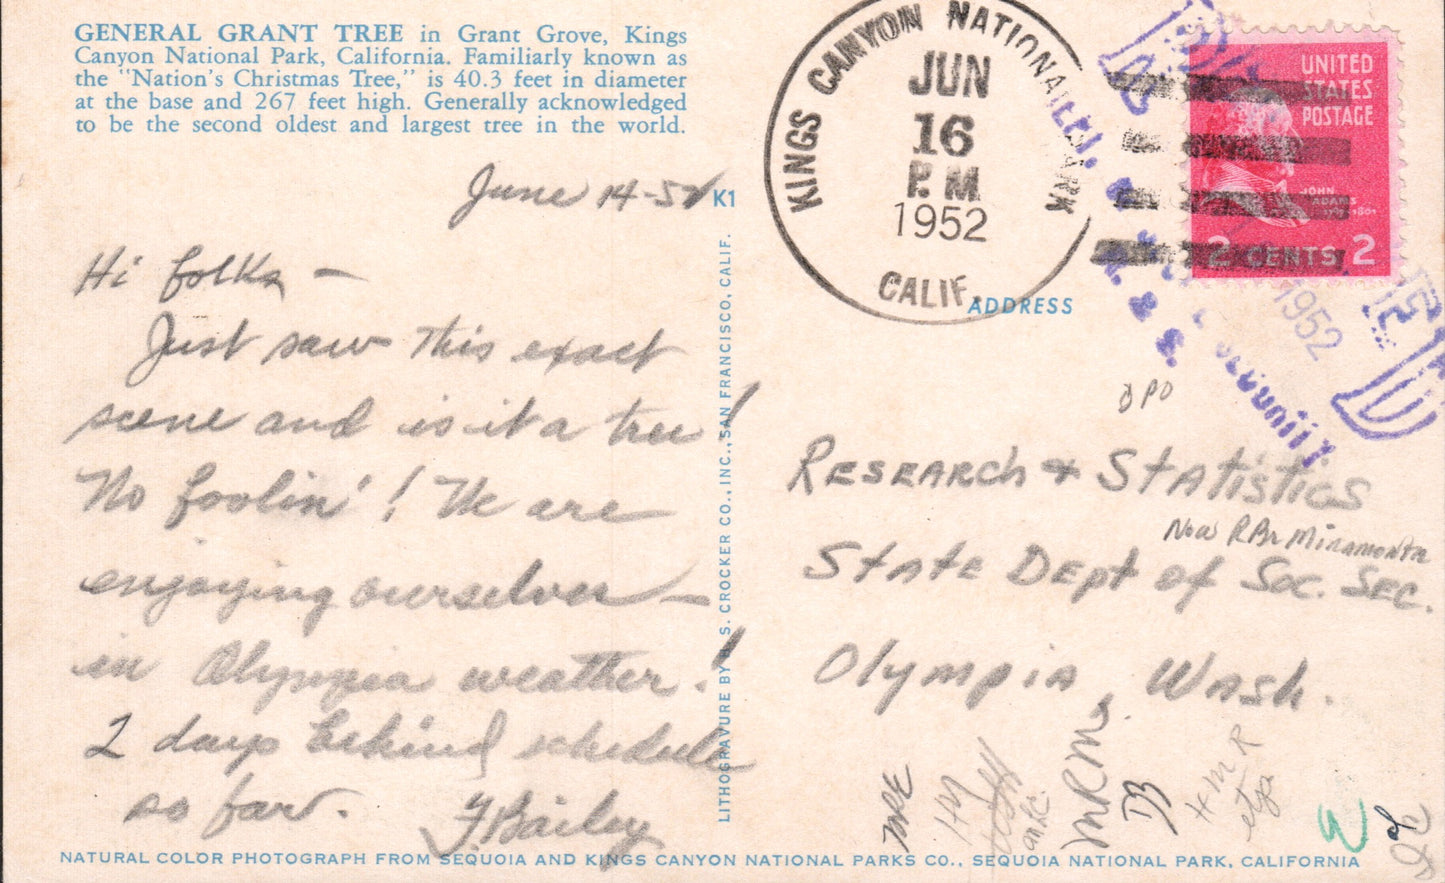 GENERAL GRANT TREE in Grant Grove, Kings
Canyon National Park, California. Familiarly known as
the "Nation's Christmas Tree," is 40.3 feet in diameter
at the base and 267 feet high. Generally acknowledged
to be the second oldest and largest tree in the world.
June 14-52
K1
Hi folks —
Just saw this exact
scene and is it a tree!
No foolin'! We are
enjoying ourselves —
in Olympia weather!
2 days behind schedule
so far. F Bailey
LITHOGRAVURE BY H. S. CROCKER CO., INC., SAN FRANCISCO, CALIF.
KINGS CANYON NATIONAL PARK
JUN
16
P.M
1952
CALIF.
UNITED
STATES
POSTAGE
JOHN
ADAMS
2 CENTS 2
1952
ADDRESS
DPO
RESEARCH + STATISTICS
Now R Br Miramonta
STATE DEPT of Soc. Sec.
Olympia, Wash.
MRM
DB
HMR
NATURAL COLOR PHOTOGRAPH FROM SEQUOIA AND KINGS CANYON NATIONAL PARKS CO., SEQUOIA NATIONAL PARK, CALIFORNIA